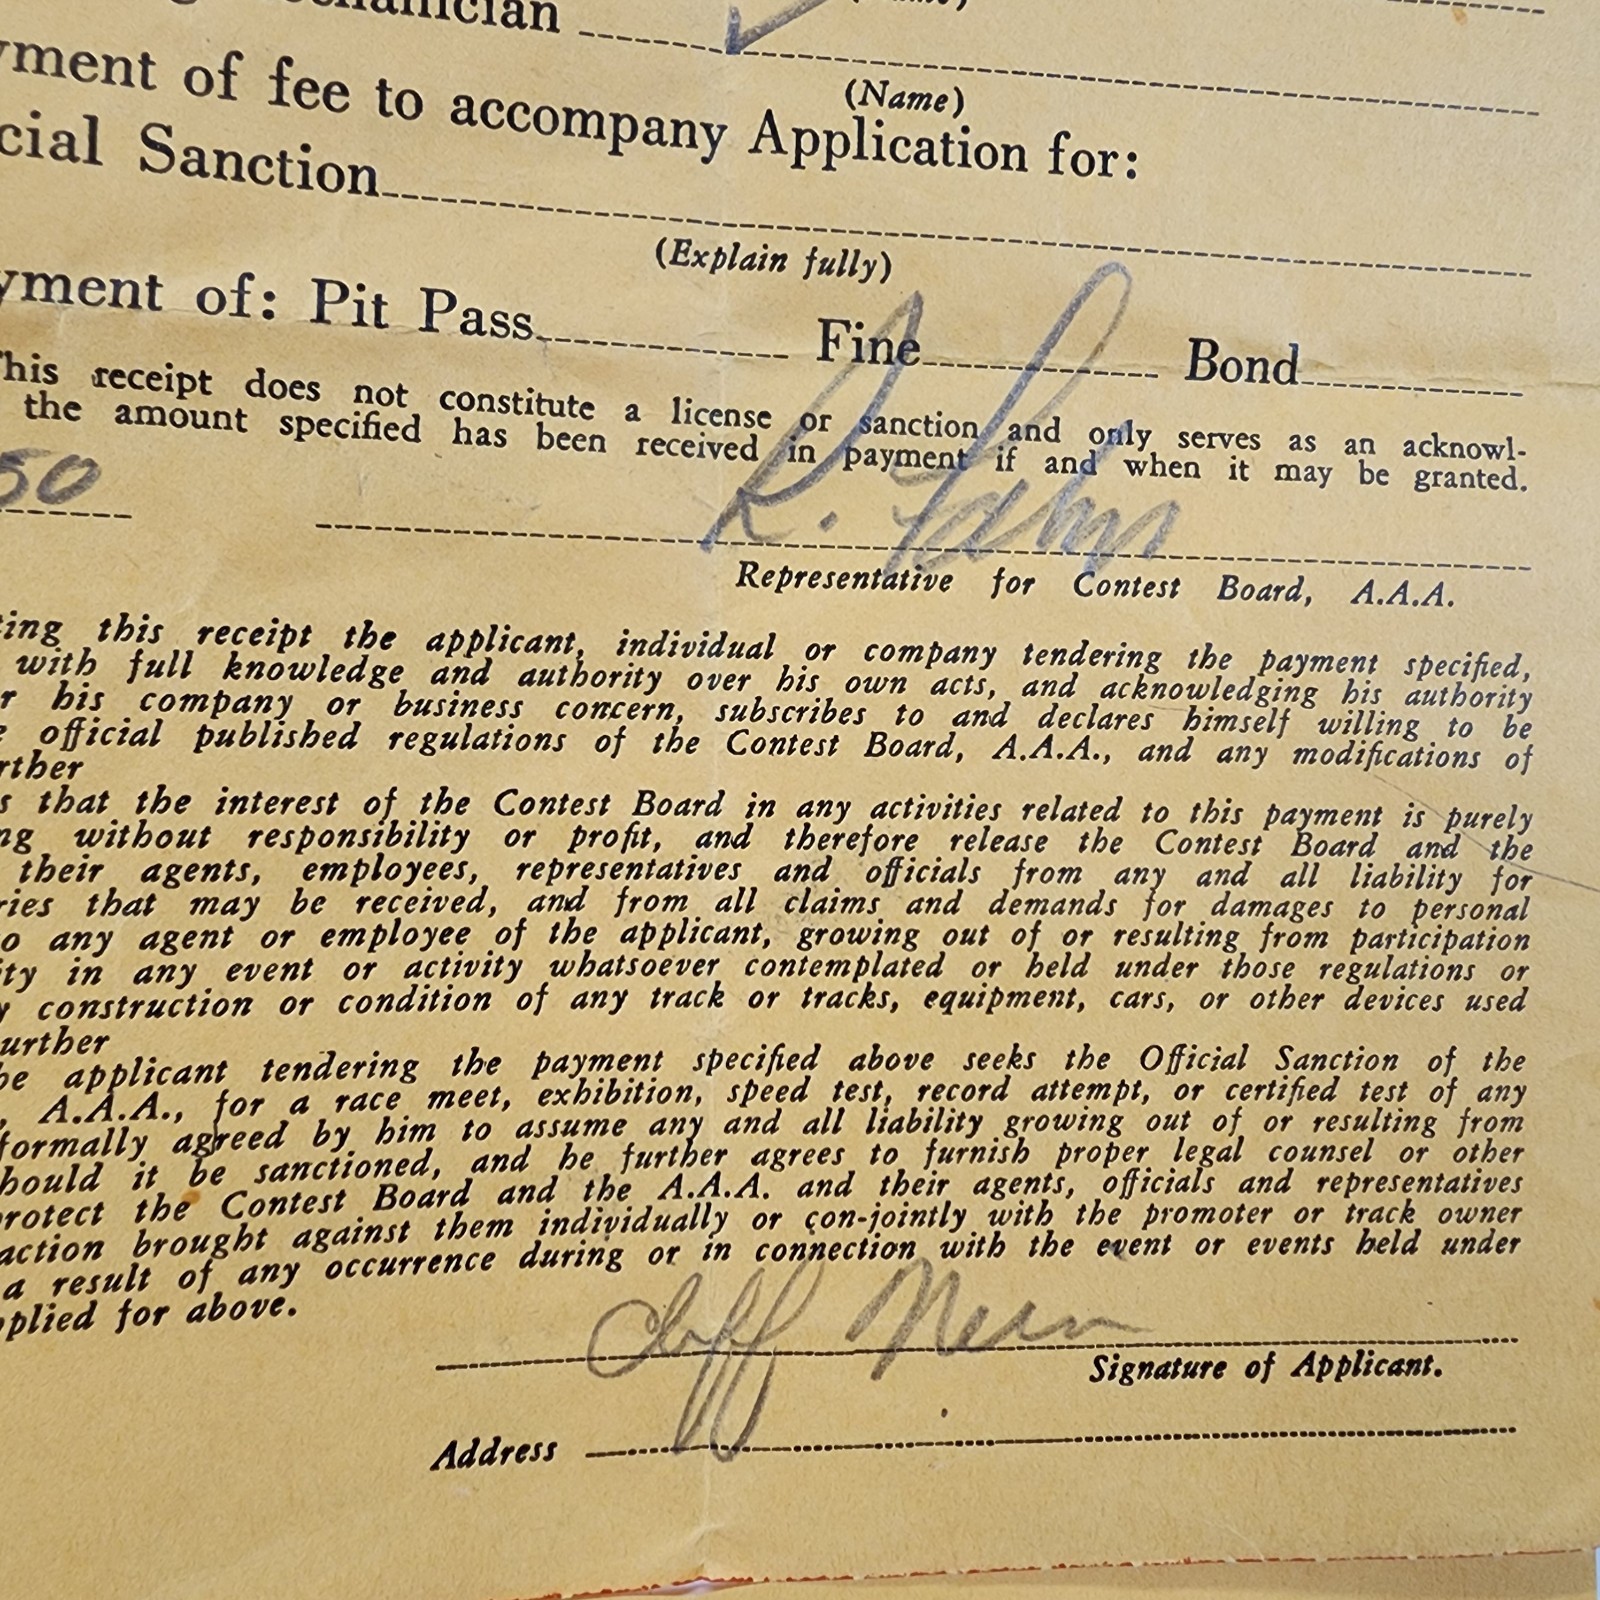 (Name)
yment of fee to accompany Application for:
cial Sanction
(Explain fully)
yment of: Pit Pass Fine Bond
This receipt does not constitute a license or sanction and only serves as an acknowl-
the amount specified has been received in payment if and when it may be granted.
50
R.
Representative for Contest Board, A.A.A.
ting this receipt the applicant, individual or company tendering the payment specified,
with full knowledge and authority over his own acts, and acknowledging his authority
r his company or business concern, subscribes to and declares himself willing to be
e official published regulations of the Contest Board, A.A.A., and any modifications of
rther
s that the interest of the Contest Board in any activities related to this payment is purely
ng without responsibility or profit, and therefore release the Contest Board and the
their agents, employees, representatives and officials from any and all liability for
ries that may be received, and from all claims and demands for damages to personal
o any agent or employee of the applicant, growing out of or resulting from participation
ity in any event or activity whatsoever contemplated or held under those regulations or
y construction or condition of any track or tracks, equipment, cars, or other devices used
urther
be applicant tendering the payment specified above seeks the Official Sanction of the
, A.A.A., for a race meet, exhibition, speed test, record attempt, or certified test of any
formally agreed by him to assume any and all liability growing out of or resulting from
hould it be sanctioned, and he further agrees to furnish proper legal counsel or other
rotect the Contest Board and the A.A.A. and their agents, officials and representatives
action brought against them individually or con-jointly with the promoter or track owner
a result of any occurrence during or in connection with the event or events held under
pplied for above.
Cliff
Signature of Applicant.
Address